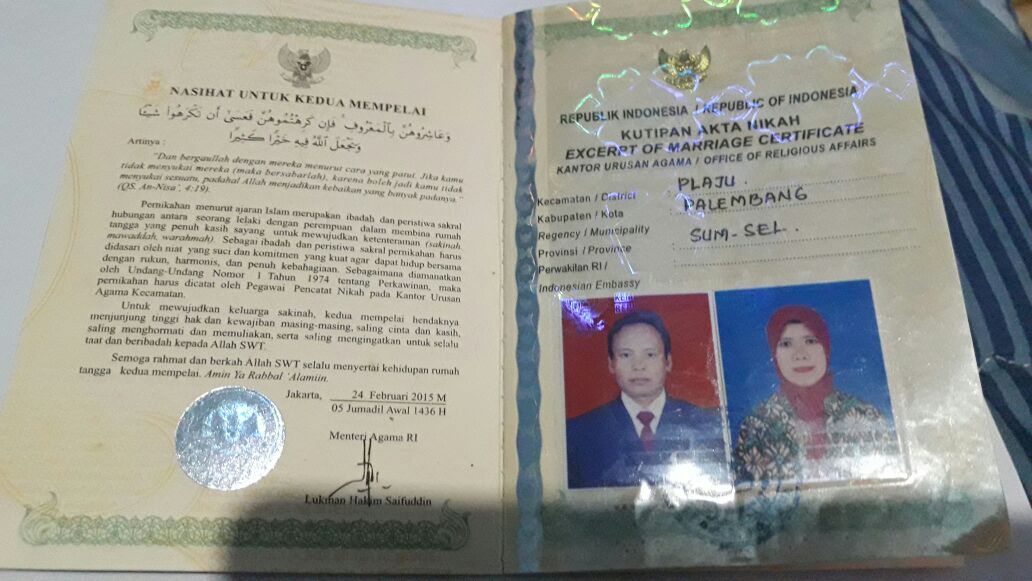 NASIHAT UNTUK KEDUA MEMPELAI
وَعَاشِرُوْهُنَّ بِالْمَعْرُوْفِ ۚ فَاِنْ كَرِهْتُمُوْهُنَّ فَعَسٰٓى اَنْ تَكْرَهُوْا شَيْـًٔا
وَّيَجْعَلَ اللّٰهُ فِيْهِ خَيْرًا كَثِيْرًا
Artinya :
"Dan bergaullah dengan mereka menurut cara yang patut. Jika kamu
tidak menyukai mereka (maka bersabarlah), karena boleh jadi kamu tidak
menyukai sesuatu, padahal Allah menjadikan kebaikan yang banyak padanya."
(QS. An-Nisa', 4:19).
Pernikahan menurut ajaran Islam merupakan ibadah dan peristiwa sakral
hubungan antara seorang lelaki dengan perempuan dalam membina rumah
tangga yang penuh kasih sayang untuk mewujudkan ketenteraman (sakinah
mawaddah, warahmah). Sebagai ibadah dan peristiwa sakral pernikahan harus
didasari oleh niat yang suci dan komitmen yang kuat agar dapat hidup bersama
dengan rukun, harmonis, dan penuh kebahagiaan. Sebagaimana diamanatkan
oleh Undang-Undang Nomor 1 Tahun 1974 tentang Perkawinan, maka
pernikahan harus dicatat oleh Pegawai Pencatat Nikah pada Kantor Urusan
Agama Kecamatan.
Untuk mewujudkan keluarga sakinah, kedua mempelai hendaknya
menjunjung tinggi hak dan kewajiban masing-masing, saling cinta dan kasih,
saling menghormati dan memuliakan, serta saling mengingatkan untuk selalu
taat dan beribadah kepada Allah SWT.
Semoga rahmat dan berkah Allah SWT selalu menyertai kehidupan rumah
tangga kedua mempelai. Amin Ya Rabbal 'Alamiin.
Jakarta, 24 Februari 2015 M
05 Jumadil Awal 1436 H
Menteri Agama RI
Lukman Hakim Saifuddin
REPUBLIK INDONESIA / REPUBLIC OF INDONESIA
KUTIPAN AKTA NIKAH
EXCERPT OF MARRIAGE CERTIFICATE
KANTOR URUSAN AGAMA / OFFICE OF RELIGIOUS AFFAIRS
Kecamatan / District PLAJU.
Kabupaten / Kota PALEMBANG
Regency / Municipality
Provinsi / Province SUM-SEL.
Perwakilan RI /
Indonesian Embassy